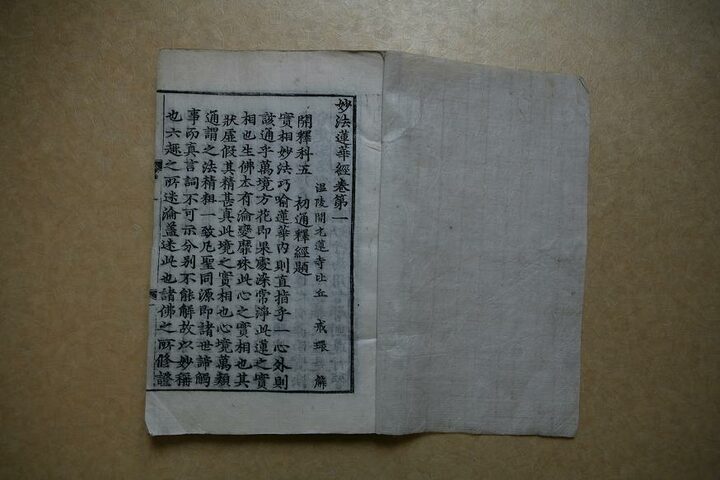 妙法蓮華經卷第一
温陵開元蓮寺比丘 戒環 解
開釋科五 初通釋經題
實相妙法巧喻蓮華内則直指乎一心外則
該通乎萬境方花即果處染常淨此蓮之實
相也生佛本有淪變靡殊此心之實相也其
狀虛假其精甚真此境之實相也心境萬類
通謂之法精粗一致凡聖同源即諸世諦觸
事而真言詞不可示分別不能解故以妙稱
也六趣之所迷淪盖迷此也諸佛之所修證